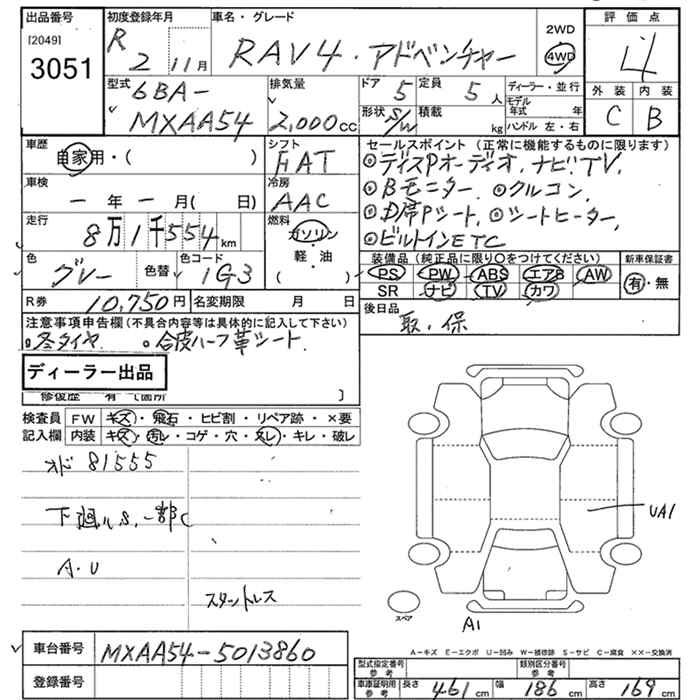 出品番号 初度登録年月 車名・グレード 2WD 評価点
[2049] R 2 11月 RAV4・アドベンチャー 4WD 4
3051
型式 排気量 ドア 5 定員 5人 ディーラー・並行 外装 内装
6BA- モデル年式 年 C B
MXAA54 2,000cc 形状 S/W 積載 kg ハンドル 左・右
車歴 シフト セールスポイント (正常に機能するものに限ります)
自家用・( ) FAT ◎ディスPオーディオ、ナビ、TV、
車検 冷房 ◎Bモニター、◎クルコン、
ー年ー月( 日) AAC ◎D席Pシート、◎シートヒーター、
走行 燃料 ◎ビルトインETC
8万1千554km ガソリン・軽・油 ( )
色 グレー 色替 色コード 1G3
装備品 (純正品に限り○をつけてください) 新車保証書
PS PW ABS エアB AW 有・無
SR ナビ TV カワ
R券 10,750円 名変期限 月 日 後日品
取・保
注意事項申告欄 (不具合内容等は具体的に記入して下さい)
◎冬タイヤ ◎合皮ハーフ革シート
ディーラー出品
修復歴 有 (箇所 )
検査員 FW キズ・飛石・ヒビ割・リペア跡・×要
記入欄 内装 キズ・汚レ・コゲ・穴・スレ・キレ・破レ
オド 81555
下廻りS、一部C
A・U
スタットレス
UA1
スペア
A1
A−キズ E−エクボ U−凹み W−補修跡 S−サビ C−腐食 ××−交換済
車台番号 MXAA54-5013860
登録番号
型式指定番号 参考 類別区分番号 参考
車庫証明用 参考 長さ 461cm 幅 186cm 高さ 169cm